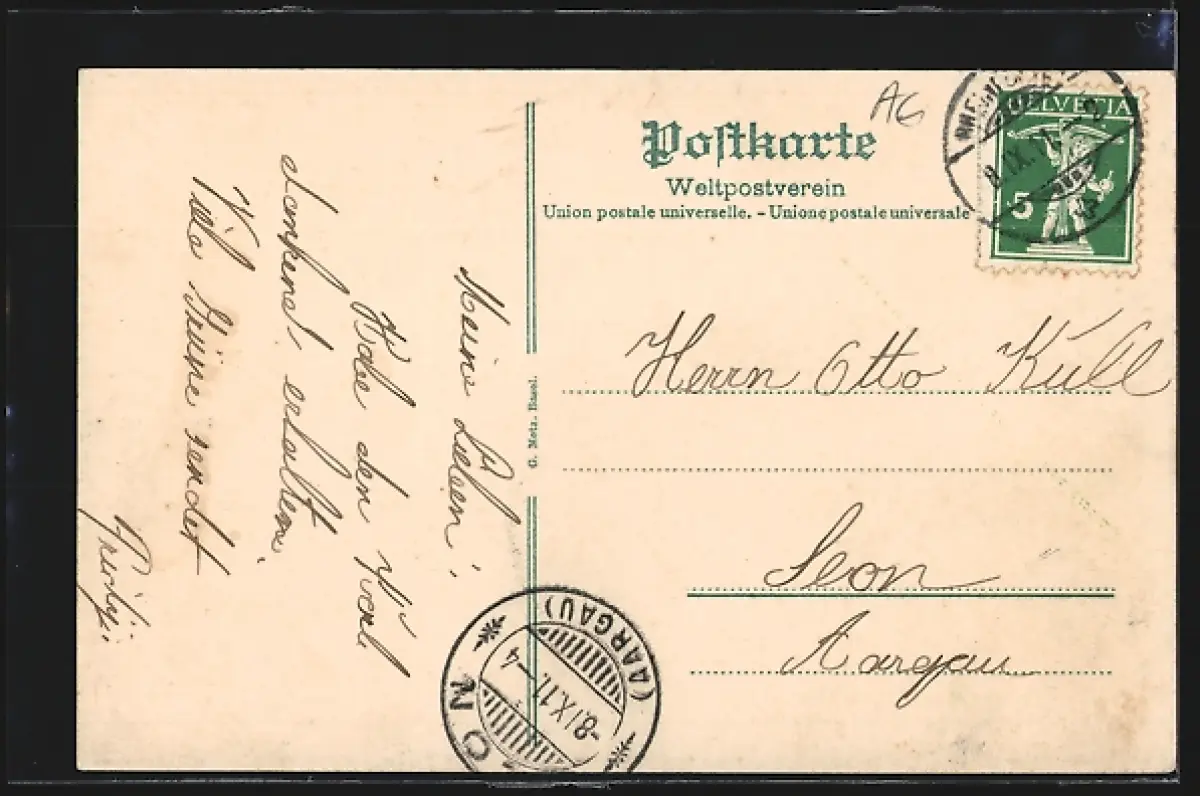 AG
Postkarte
Weltpostverein
Union postale universelle. – Unione postale universale
HELVETIA
5
IX.11.
Herrn Otto Küll
Seon
Aargau
G. Metz. Basel.
Meine Lieben!
Habe den
dankend erhalten.
Viele Grüsse sendet
ON
(AARGAU)
-8.IX.11.-4